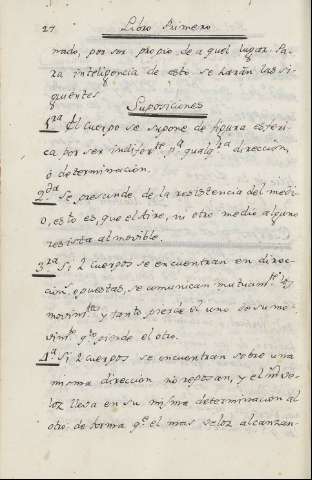 27 Libro Primero
nado, por ser propio de aquel lugar. Pa-
ra inteligencia de esto se harán las si-
guientes
Suposiciones
1ra El cuerpo se supone de figura esferi-
ca por ser indifte pa qualqra dirección,
ó determinación.
2da Se prescinde de la resistencia del medi-
o, esto es, que el Aire, ni otro medio alguno
resista al movible.
3ra Si 2 cuerpos se encuentran en direc-
cions opuestas, se comunican mutuamte los
movimtos y tanto pierde el uno de su mo-
vimto qto pierde el otro.
4a Si 2 cuerpos se encuentran sobre una
misma dirección no reposan, y el mas ve-
loz lleva en su misma determinacion al
otro: de forma qe el mas veloz alcanzan-